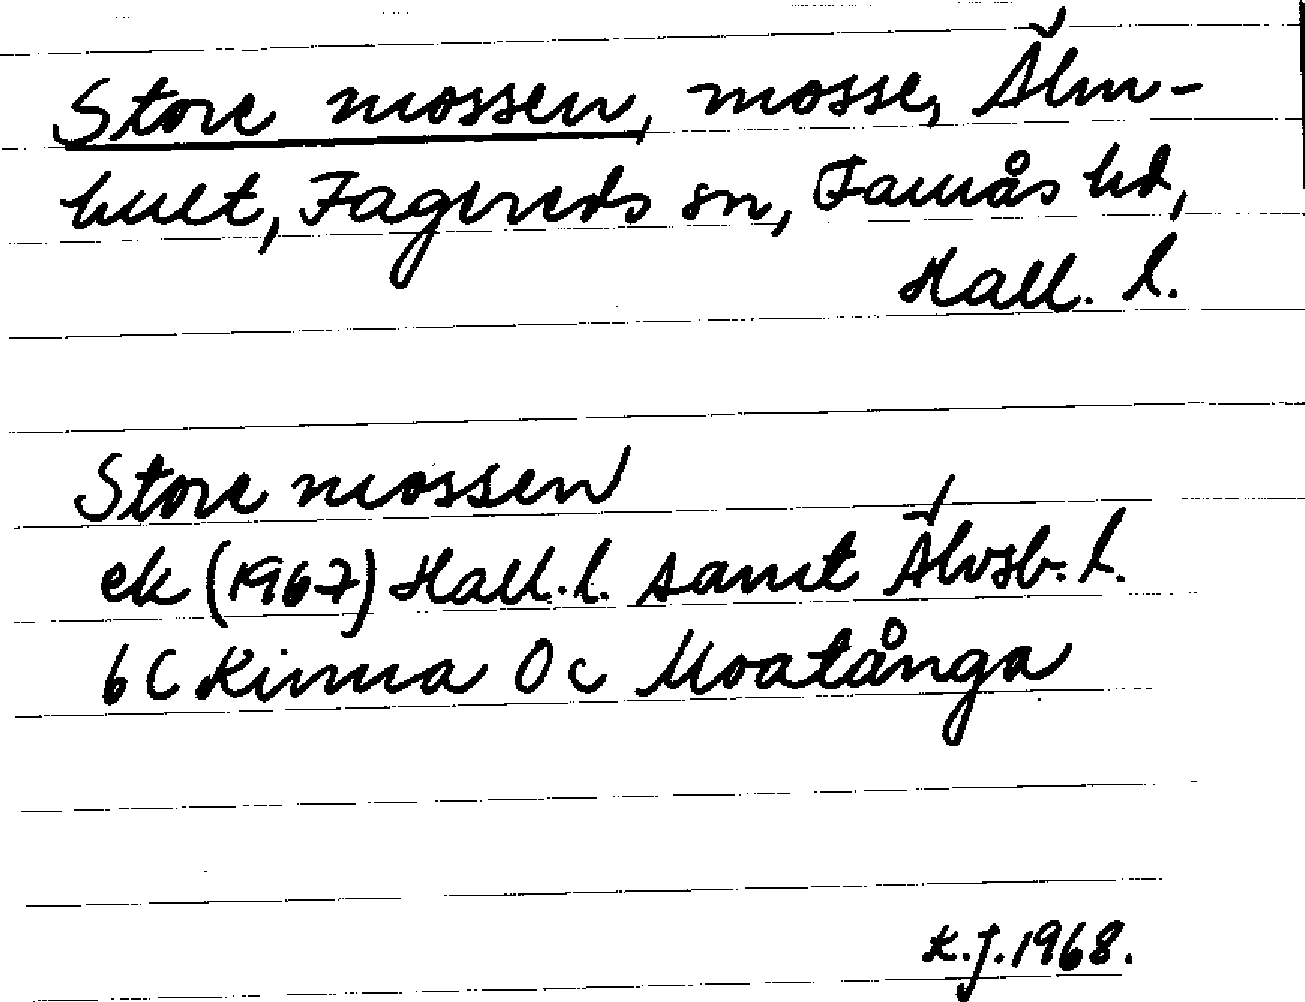 Store mossen, mosse, Älm-
hult, Fagereds sn, Faurås hd,
Hall. l.
Store mossen
ek (1967) Hall. l. samt Älvsb. l.
6 C Kinna 0 c Moatånga
K.J. 1968.